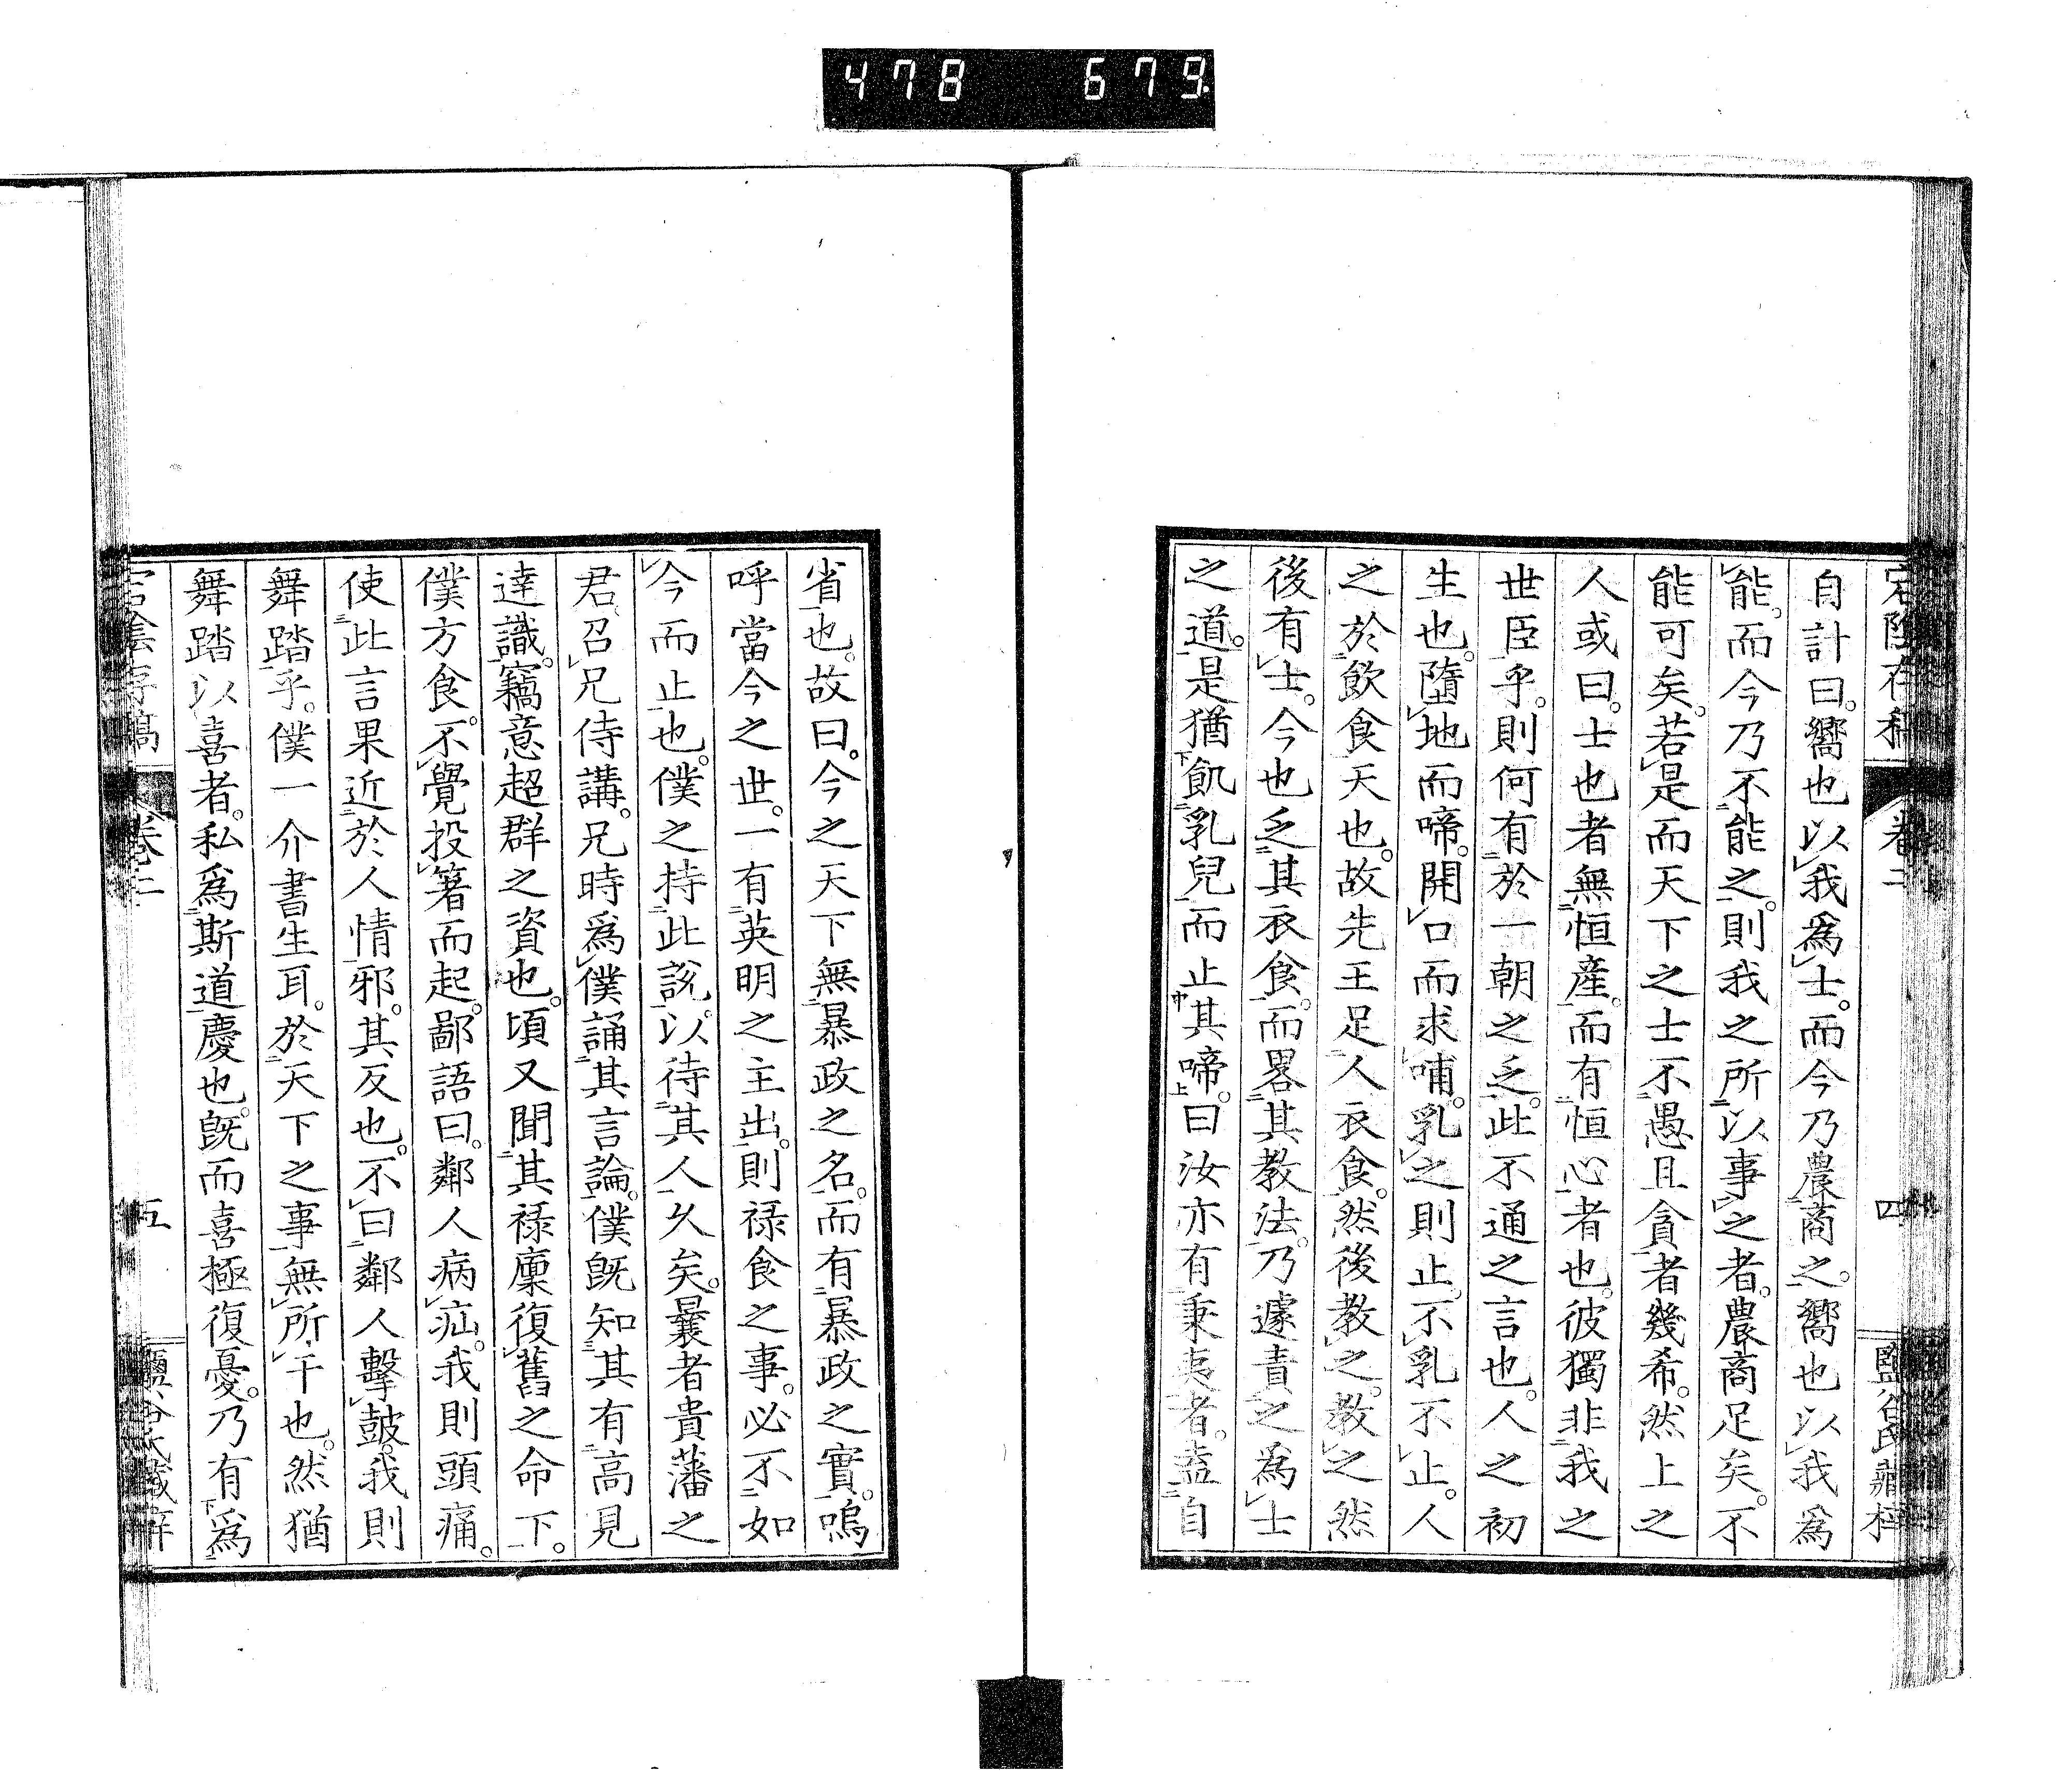 478 679
宕陰存稿 卷二 四 鹽谷氏藏梓
自計曰。嚮也以我爲士。而今乃農商之。嚮也以我爲
能。而今乃不能之。則我之所以事之者。農商足矣。不
能可矣。若是而天下之士不愚且貪者幾希。然上之
人或曰。士也者無恒産。而有恒心者也。彼獨非我之
世臣乎。則何有於一朝之乏。此不通之言也。人之初
生也。墮地而啼。開口而求哺。乳之則止。不乳不止。人
之於飮食天也。故先王足人衣食。然後教之。教之然
後有士。今也乏其衣食。而畧其教法。乃遽責之爲士
之道。是猶飢乳兒而止其啼。曰汝亦有秉夷者。盍自
省也。故曰。今之天下無暴政之名。而有暴政之實。嗚
呼當今之世。一有英明之主出。則祿食之事。必不如
今而止也。僕之持此說。以待其人久矣。曩者貴藩之
君。召兄侍講。兄時爲僕誦其言論。僕旣知其有高見
達識。竊意超群之資也。頃又聞其祿廩復舊之命下。
僕方食。不覺投箸而起。鄙語曰。鄰人病疝。我則頭痛。
使此言果近於人情邪。其反也。不曰鄰人擊鼓。我則
舞踏乎。僕一介書生耳。於天下之事無所干也。然猶
舞踏以喜者。私爲斯道慶也。旣而喜極復憂。乃有爲
宕陰存稿 卷二 五 鹽谷氏藏梓